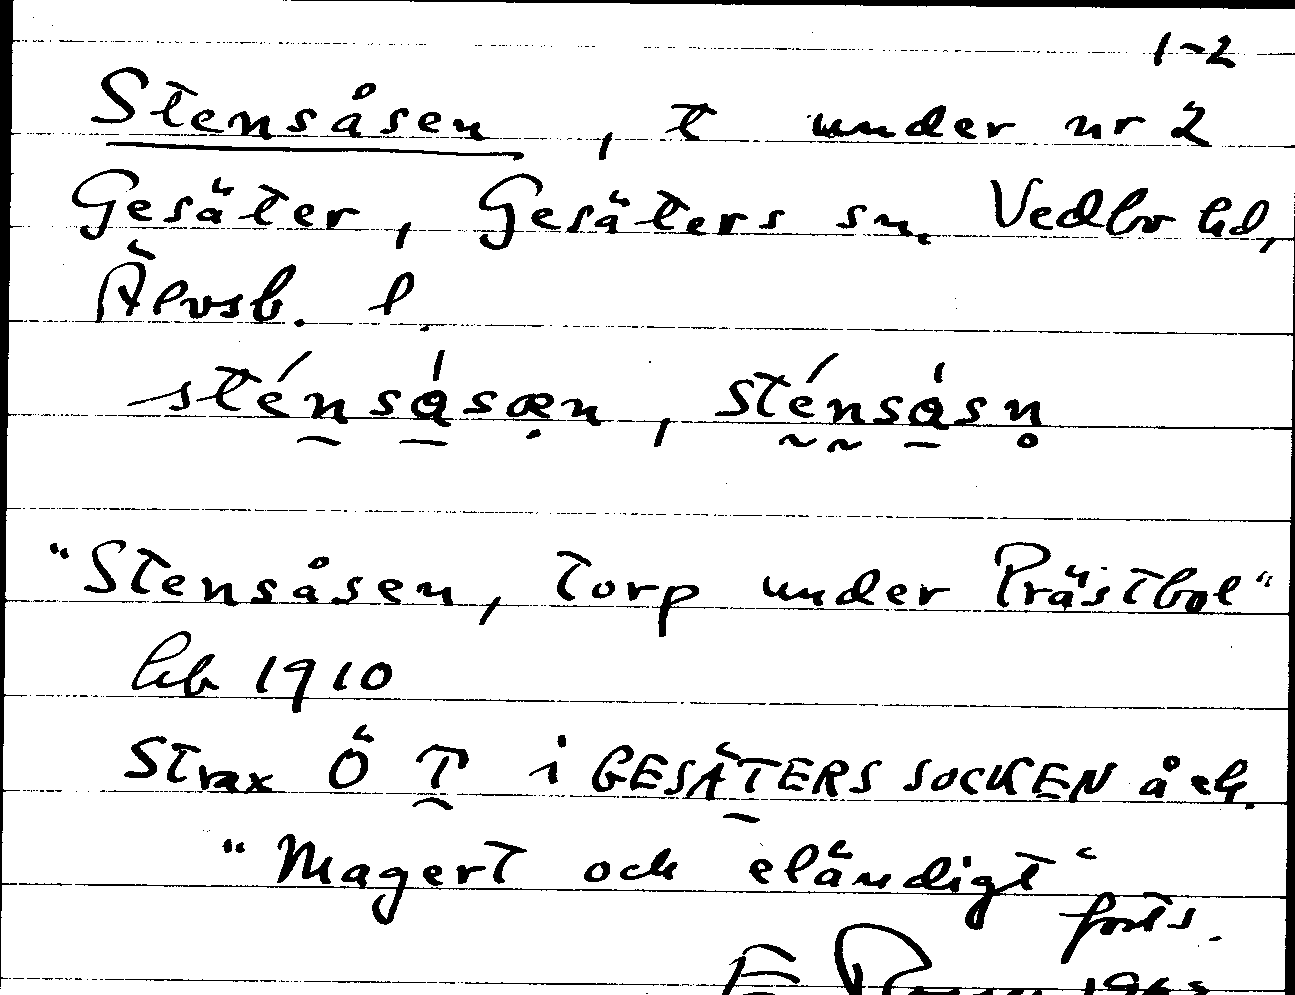 1-2
Stensåsen, t under nr 2
Gesäter, Gesäters sn. Vedbo hd,
Älvsb. l.
sténsåsæn, sténsåsn̥
"Stensåsen, torp under Prästbol"
hb 1910
Strax Ö T i GESÄTERS SOCKEN å ek.
"Magert och eländigt"
forts.